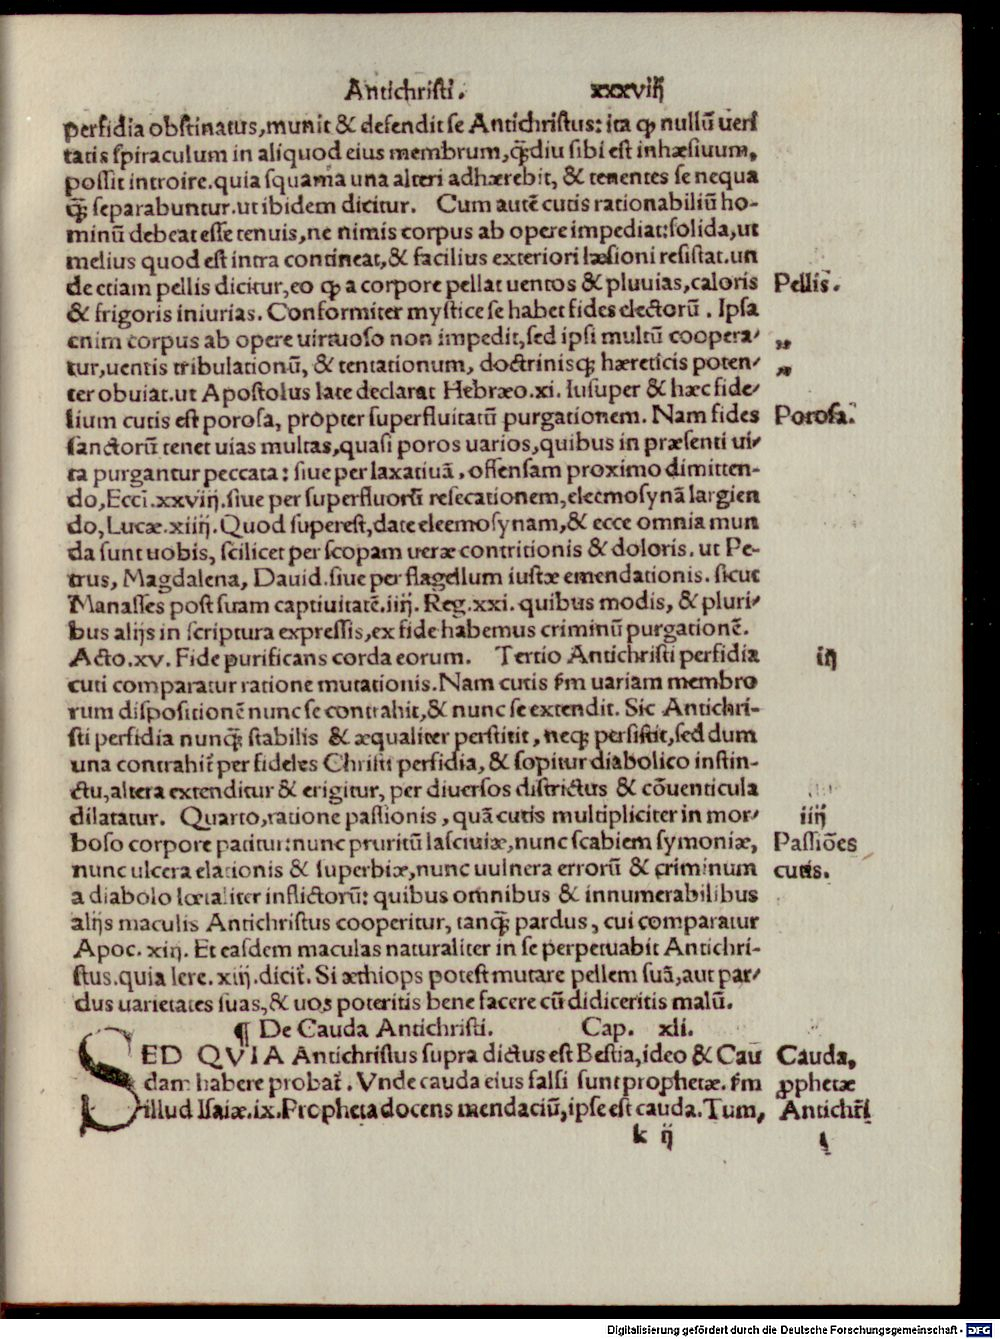 Antichristi. xxxviij
perfidia obstinatus, munit & defendit se Antichristus: ita ꝙ nullū ueri
tatis spiraculum in aliquod eius membrum, q̄diu sibi est inhæsiuum,
possit introire. quia squama una alteri adhærebit, & tenentes se nequa
q̄ separabuntur. ut ibidem dicitur. Cum autē cutis rationabiliū ho-
minū debeat esse tenuis, ne nimis corpus ab opere impediat: solida, ut
melius quod est intra contineat, & facilius exteriori læsioni resistat. un
de etiam pellis dicitur, eo ꝙ a corpore pellat uentos & pluuias, caloris Pellis.
& frigoris iniurias. Conformiter mystice se habet fides electorū. Ipsa
enim corpus ab opere uirtuoso non impedit, sed ipsi multū coopera- „
tur, uentis tribulationū, & tentationum, doctrinisq; hæreticis poten- „
ter obuiat. ut Apostolus late declarat Hebræo. xi. Iusuper & hæc fide-
lium cutis est porosa, propter superfluitatū purgationem. Nam fides Porosa.
sanctorū tenet uias multas, quasi poros uarios, quibus in præsenti ui-
ta purgantur peccata: siue per laxatiuā, offensam proximo dimitten-
do, Eccī. xxviij. siue per superfluorū resecationem, eleemosynā largien
do, Lucæ. xiiij. Quod superest, date eleemosynam, & ecce omnia mun
da sunt uobis, scilicet per scopam ueræ contritionis & doloris. ut Pe-
trus, Magdalena, Dauid. siue per flagellum iustæ emendationis. sicut
Manasses post suam captiuitatē. iiij. Reg. xxi. quibus modis, & pluri-
bus alijs in scriptura expressis, ex fide habemus criminū purgationē.
Acto. xv. Fide purificans corda eorum. Tertio Antichristi perfidia iij
cuti comparatur ratione mutationis. Nam cutis ſm uariam membro
rum dispositionē nunc se contrahit, & nunc se extendit. Sic Antichri-
sti perfidia nunq̄ stabilis & æqualiter perstitit, neq; persistit, sed dum
una contrahit̄ per fideles Christi perfidia, & sopitur diabolico instin-
ctu, altera extenditur & erigitur, per diuersos districtus & cōuenticula
dilatatur. Quarto, ratione passionis, quā cutis multipliciter in mor- iiij
boso corpore patitur: nunc pruritū lasciuiæ, nunc scabiem symoniæ, Passiōes
nunc ulcera elationis & superbiæ, nunc uulnera errorū & criminum cutis.
a diabolo lœtaliter inflictorū: quibus omnibus & innumerabilibus
alijs maculis Antichristus cooperitur, tanq̄ pardus, cui comparatur
Apoc. xiij. Et easdem maculas naturaliter in se perpetuabit Antichri-
stus. quia Iere. xiij. dicit̄. Si æthiops potest mutare pellem suā, aut par-
dus uarietates suas, & uos poteritis bene facere cū didiceritis malū.
¶ De Cauda Antichristi. Cap. xli.
SED QVIA Antichristus supra dictus est Bestia, ideo & Cau Cauda,
dam habere probat̄. Vnde cauda eius falsi sunt prophetæ. ſm ꝓphetæ
illud Isaiæ. ix. Propheta docens mendaciū, ipse est cauda. Tum, Antichr̄i
k ij
Digitalisierung gefördert durch die Deutsche Forschungsgemeinschaft - DFG